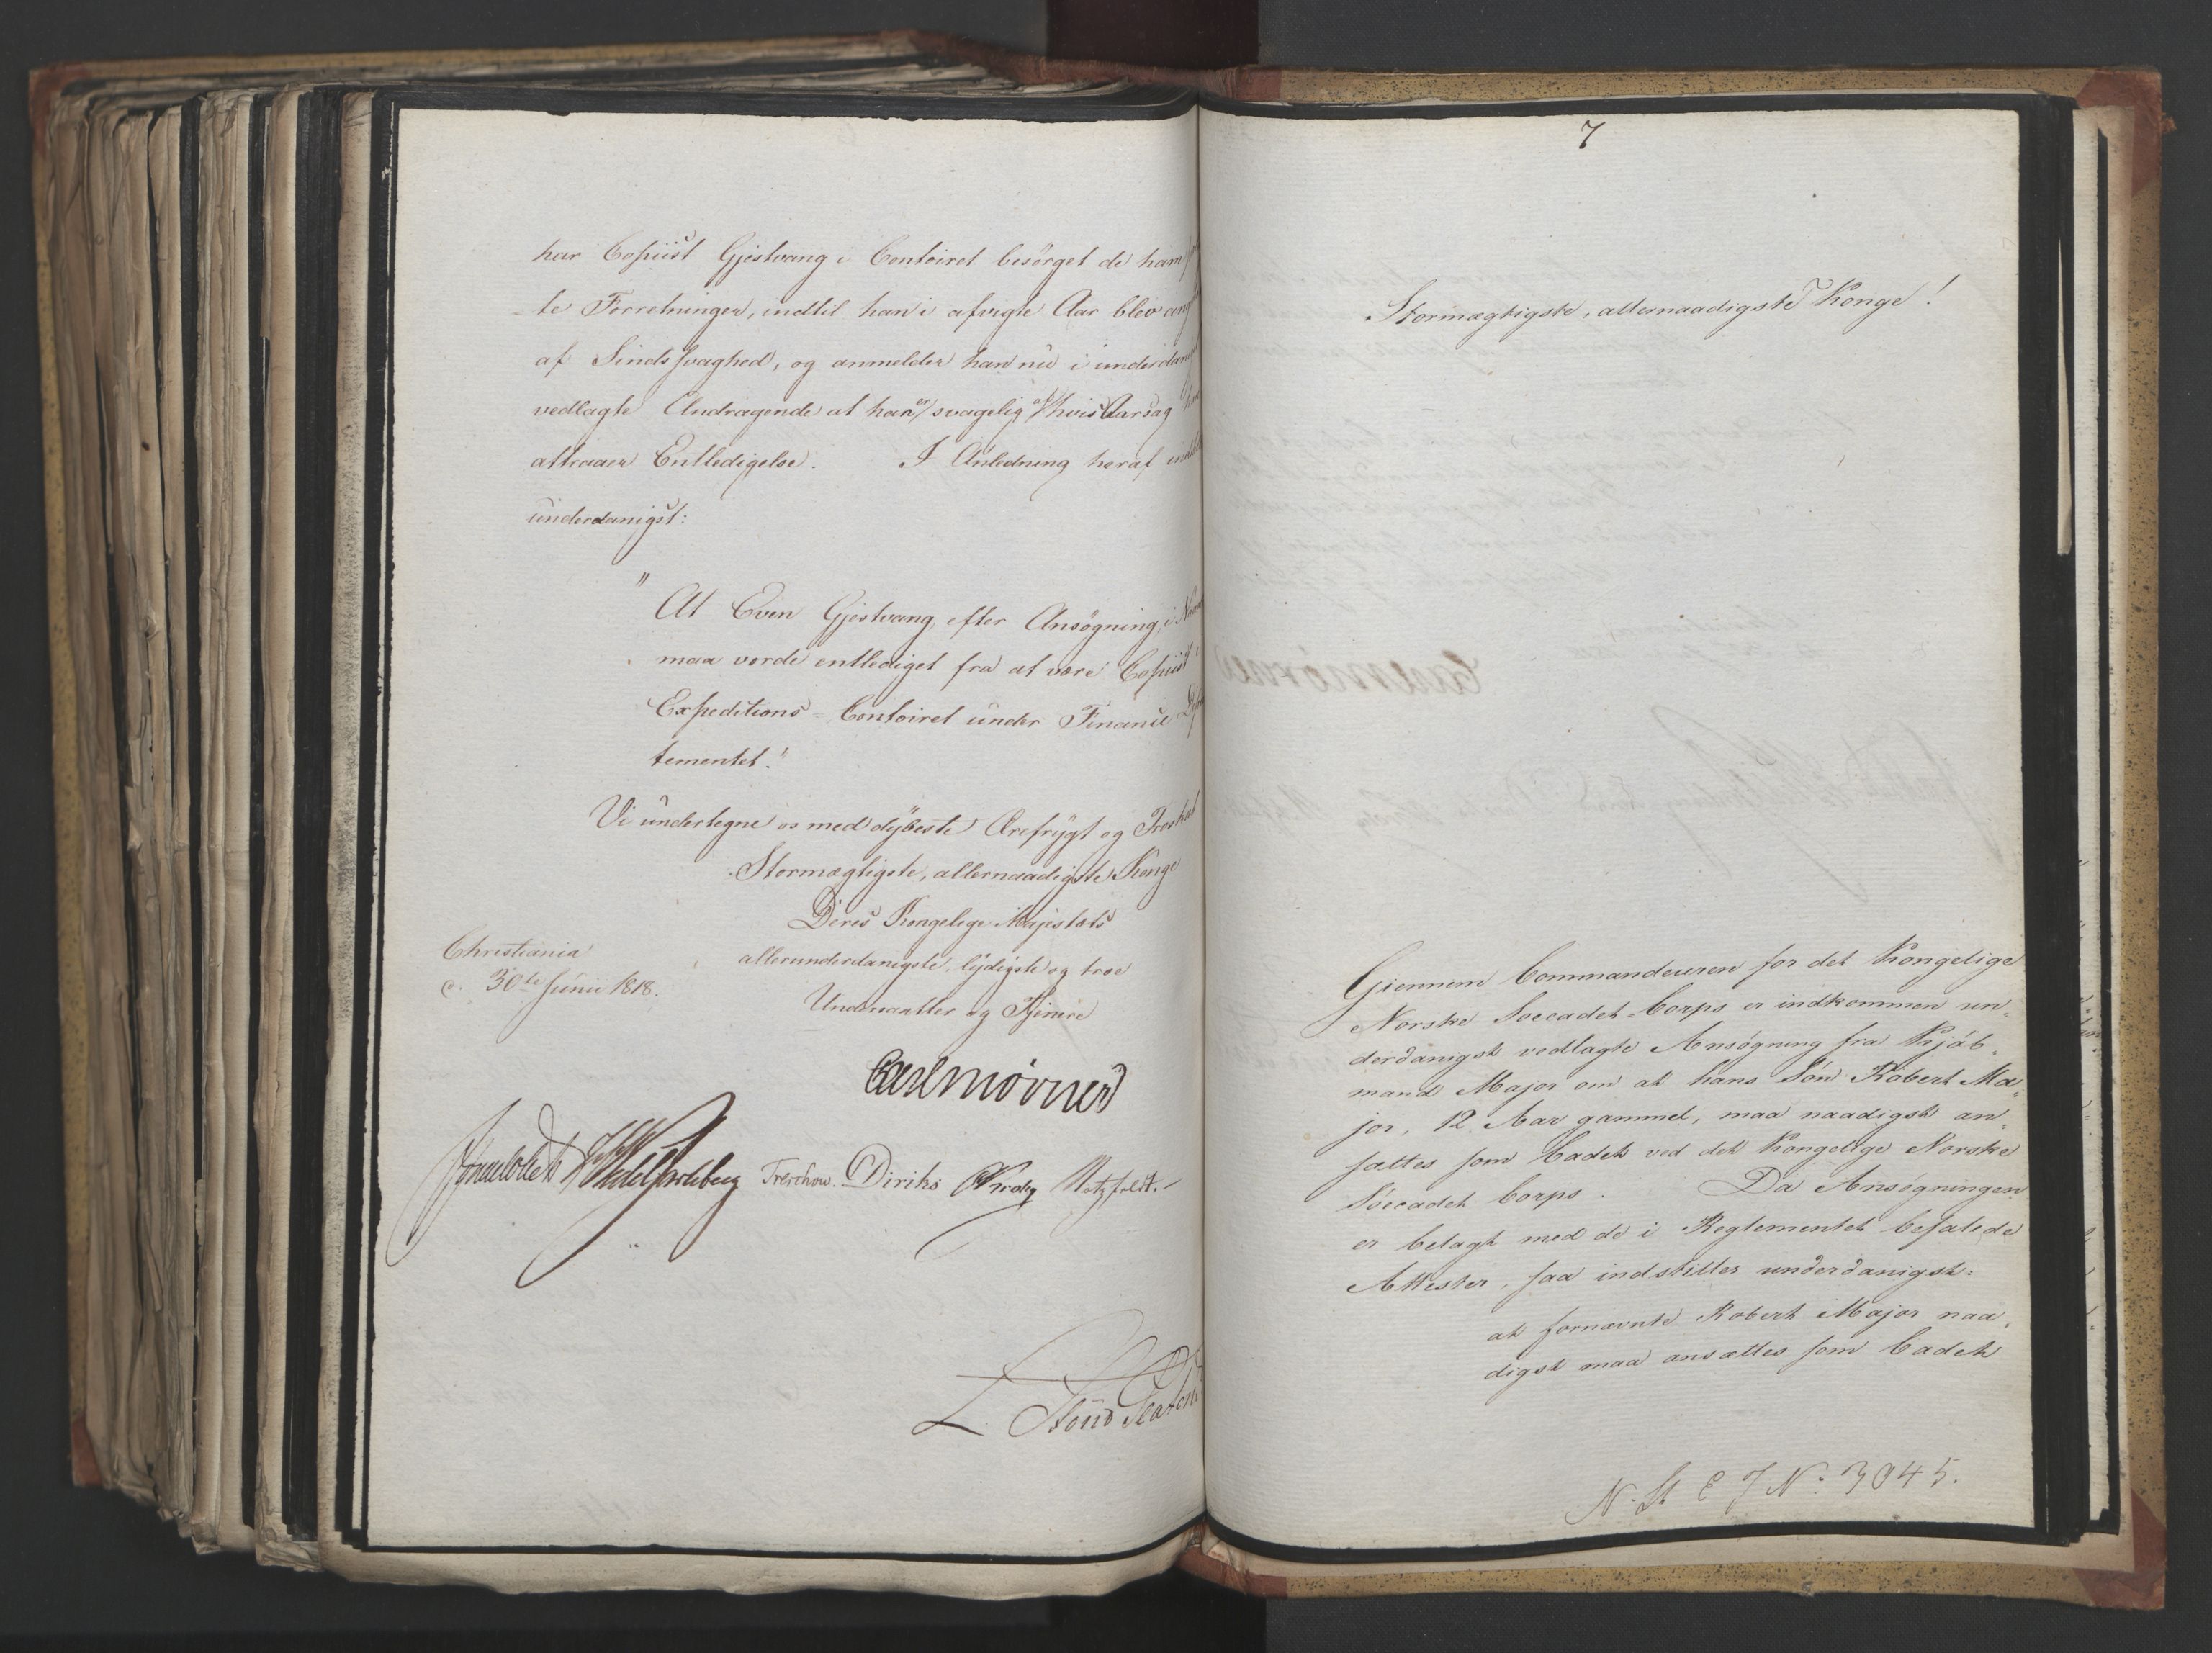 har Copiist Gjestvang i Contoiret besörget de ham
te Forretninger, indtil han i afvigte Aar blev
af Sindssvaghed, og anmelder han nu i
vedlagte Andragende at han er svagelig af hvis Aarsag
attraaer Entledigelse. I Anledning heraf
underdanigst:
"At Even Gjestvang, efter Ansögning, i
maa vorde entlediget fra at være Copiist
Expeditions-Contoiret under Finance
tementet."
Vi undertegne os med dybeste Ærefrygt og Troskab
Stormægtigste, allernaadigste Konge
Deres Kongelige Majestæts
allerunderdanigste, lydigste og troe
Undersaatter og Tjenere
Christiania
d. 30te Junii 1818.
Carl Mörner
Sommerhielm Wedel Jarlsberg Treschow. Diriks Krieg Motzfeldt.
L Stoud Platou
7
Stormægtigste, allernaadigste Konge!
Giennem Commandeuren for det Kongelige
Norske Soecadet-Corps er indkommen un-
derdanigst vedlagte Ansögning fra Kjöb-
mand Major om at hans Sön Robert Ma-
jor, 12 Aar gammel, maa naadigst an-
sættes som Cadet ved det Kongelige Norske
Söecadet Corps. Da Ansögningen
er belagt med de i Reglementet befalede
Attester, saa indstilles underdanigst:
at fornævnte Robert Major naa-
digst maa ansættes som Cadet
N. St E J No 3045.